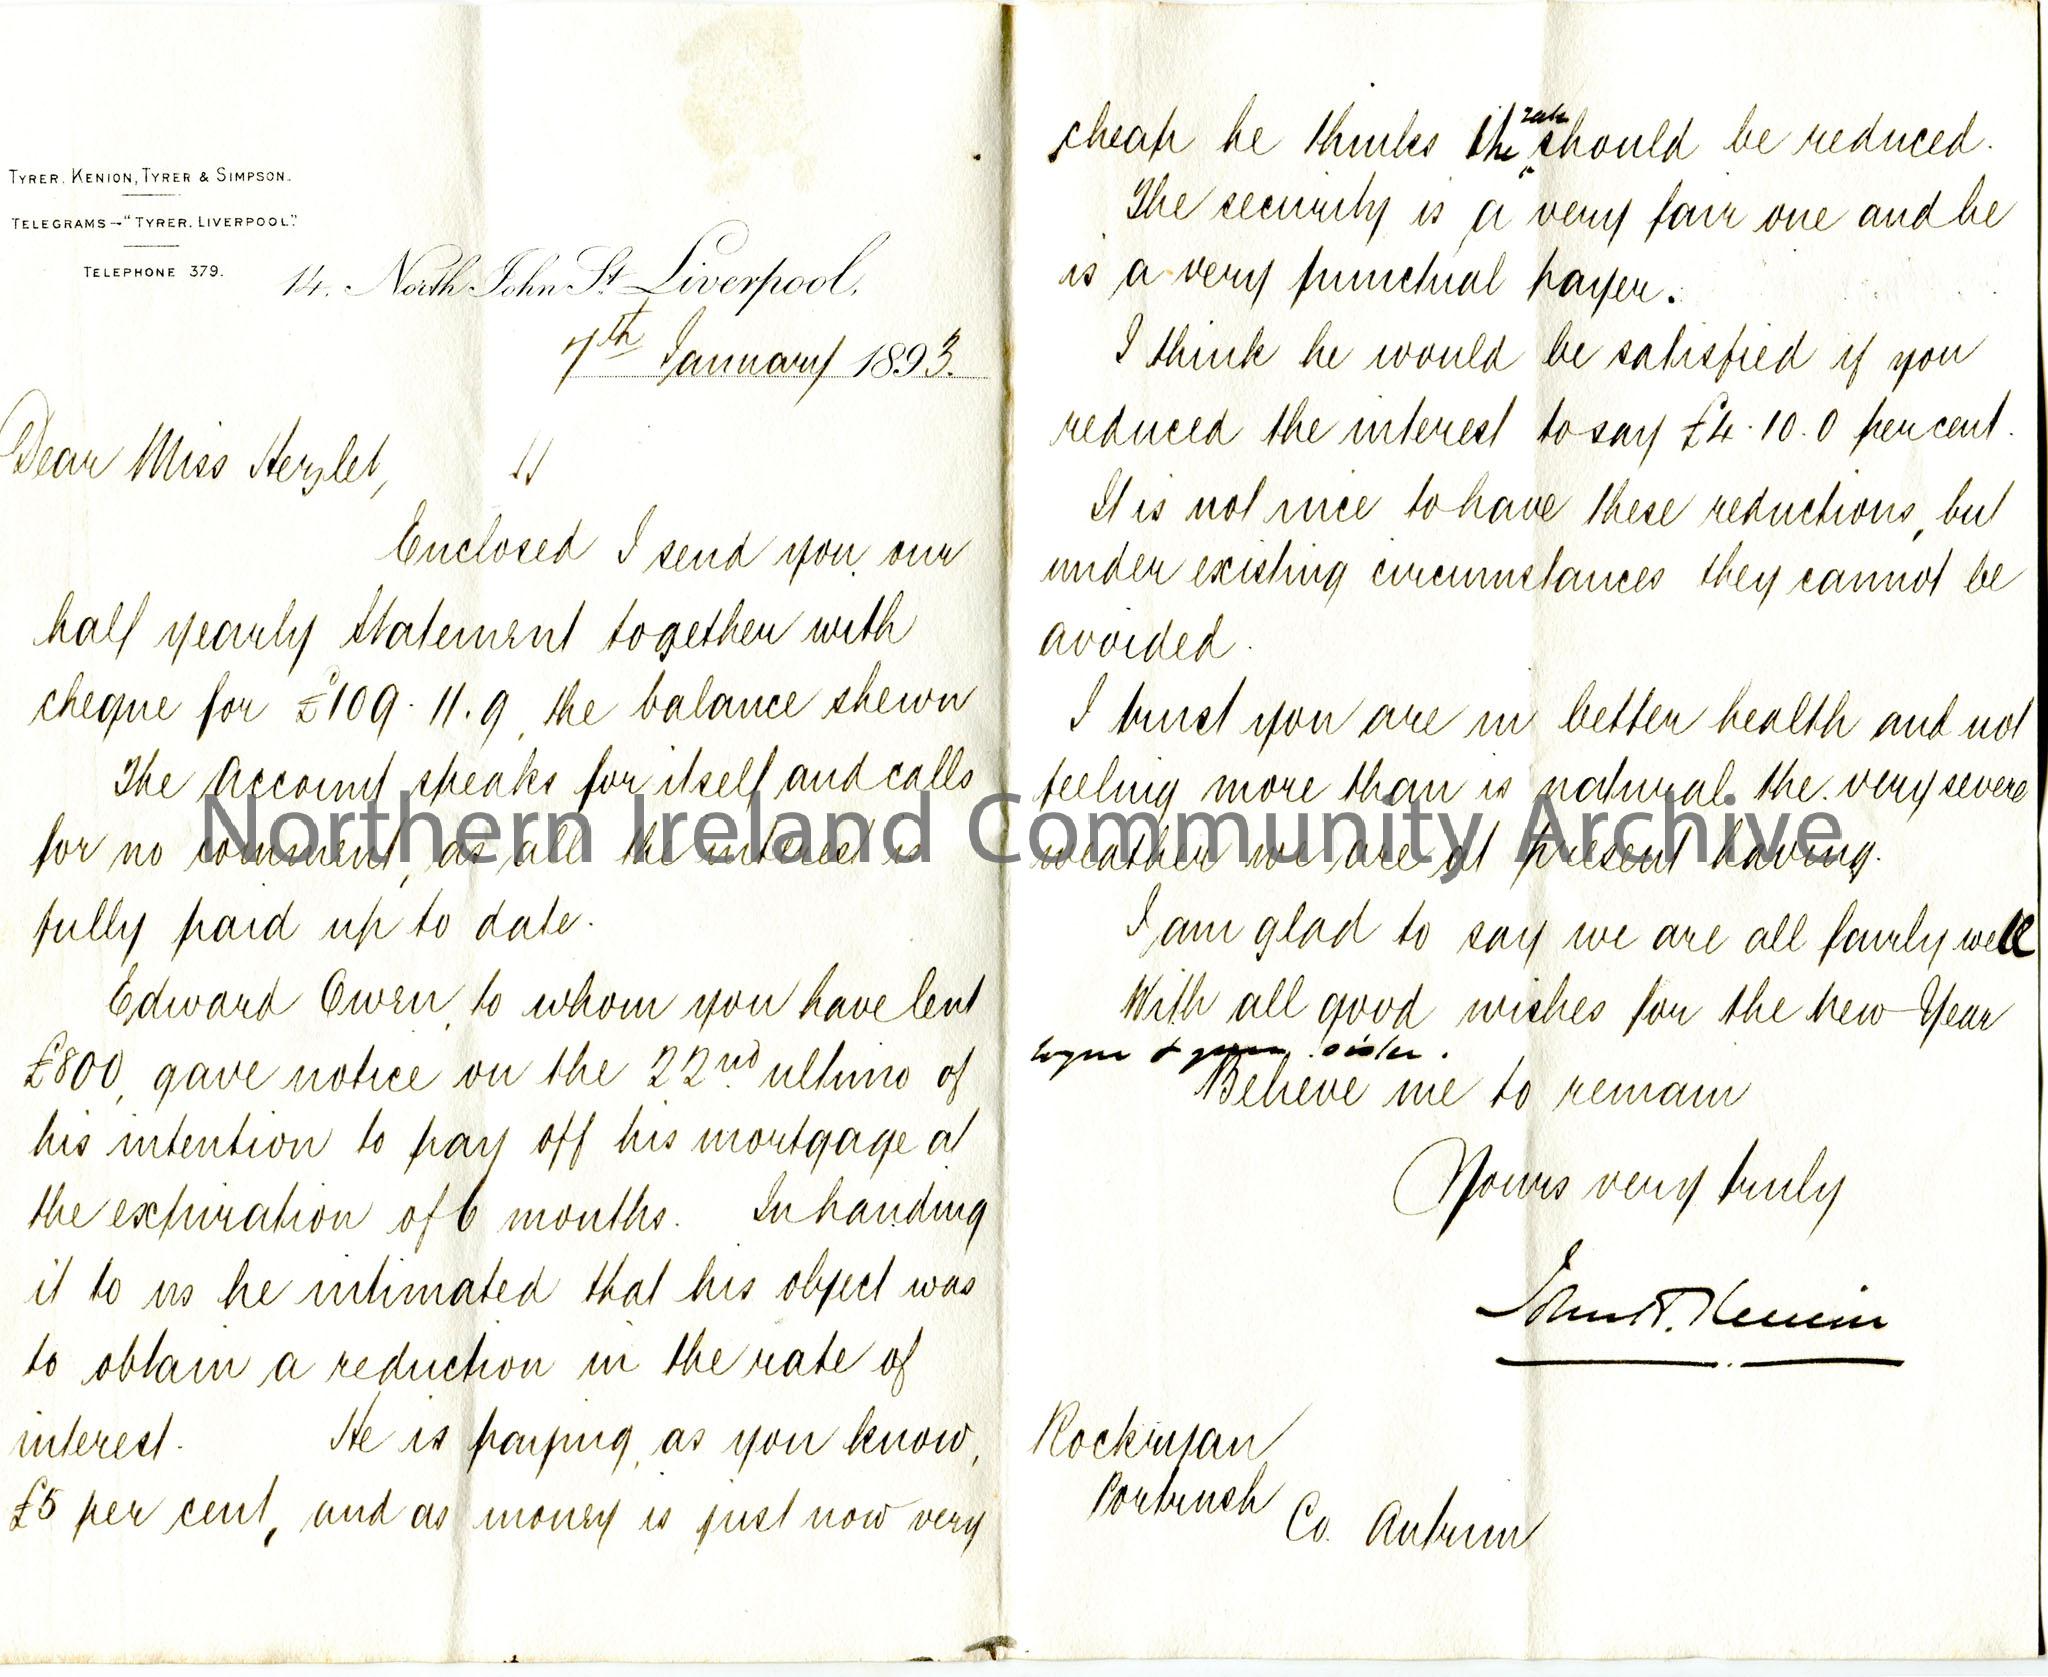 TYRER, KENION, TYRER & SIMPSON.
TELEGRAMS—"TYRER, LIVERPOOL."
TELEPHONE 379.
14, North John St. Liverpool,
7th January 1893.
Dear Miss Hezlet,
Enclosed I send you our
half yearly statement together with
cheque for £109.11.9, the balance shewn
The Account speaks for itself and calls
for no comment, as all the interest is
fully paid up to date.
Edward Owen, to whom you have lent
£800, gave notice on the 22nd ultimo of
his intention to pay off his mortgage at
the expiration of 6 months. In handing
it to us he intimated that his object was
to obtain a reduction in the rate of
interest. He is paying, as you know,
£5 per cent, and as money is just now very
cheap he thinks the rate should be reduced.
The security is a very fair one and he
is a very punctual payer.
I think he would be satisfied if you
reduced the interest to say £4.10.0 per cent.
It is not nice to have these reductions, but
under existing circumstances they cannot be
avoided.
I trust you are in better health and not
feeling more than is natural the very severe
weather we are at present having.
I am glad to say we are all fairly well
With all good wishes for the New Year
to you & your sister.
Believe me to remain
Yours very truly
John T. Kenion
Rockryan
Portrush
Co. Antrim
Northern Ireland Community Archive